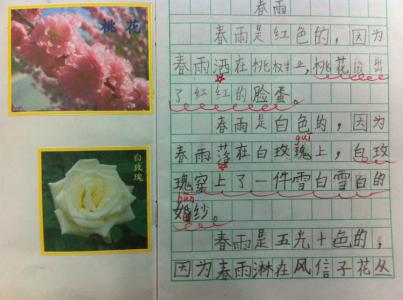 春雨
春雨是红色的，因为
春雨洒在桃树上，桃花似出
了红红的脸蛋。
春雨是白色的，因为
guī
春雨落在白玫瑰上，白玫
瑰穿上了一件雪白雪白的
hūn
婚纱。
春雨是五光十色的，
因为春雨淋在风信子花丛
桃花
白玫瑰